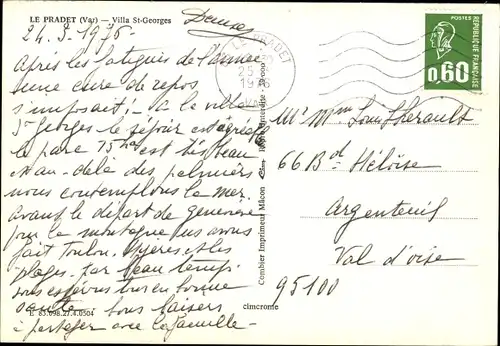 LE PRADET (Var) — Villa St-Georges
24.3.1976-
Après les fatigues de l'année
une cure de repos
s'imposait! - A la villa
St Georges le séjour est agréable
le parc 75 est très beau
Au-delà des palmiers
nous contemplons la mer
avant le départ de
pour la montagne
fait Toulon. Hyères et les
plages. Par beau temps
vous espérons tous en bonne
santé. Bons baisers
à partager avec la famille-
E 83.098.21.4.0504
cimcrome
Combier Imprimeur Mâcon
LE PRADET
25
VAR
POSTES
REPUBLIQUE FRANÇAISE
0,60
Mr Mme Louis Lherault
66 Bd Héloïse
Argenteuil
Val d'oise
95100